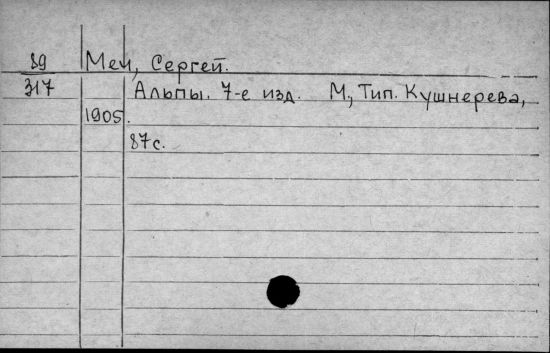 89 Меч, Сергей.
317 Альпы. 7-е изд. М., Тип. Кушнерева,
1905.
87 с.